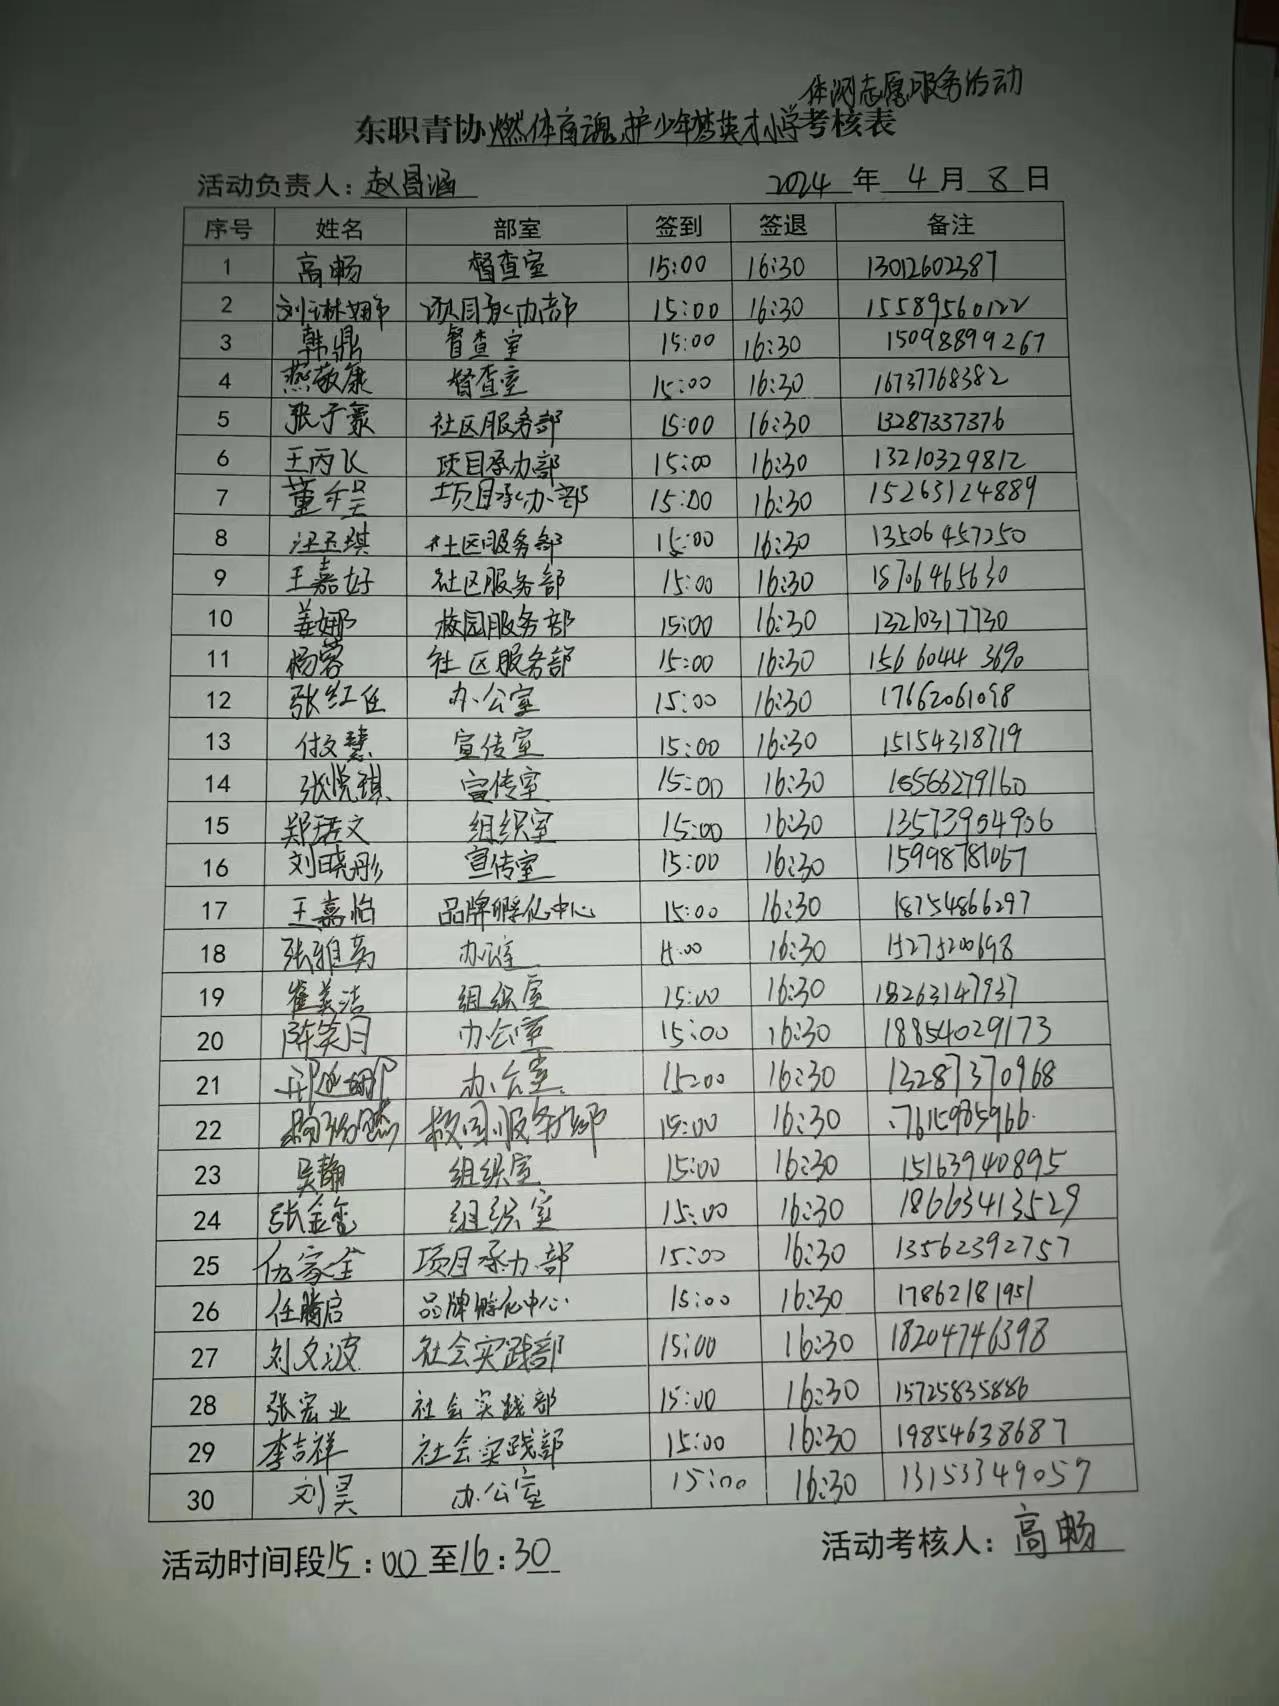 体测志愿服务活动
东职青协燃体育魂,护少年梦英才小学考核表
活动负责人：赵昌涵 2024年4月8日
序号 姓名 部室 签到 签退 备注
1 高畅 督查室 15:00 16:30 13012602387
2 刘琳娜 项目承办部 15:00 16:30 15589560122
3 韩鼎 督查室 15:00 16:30 15098899267
4 燕敬康 督查室 15:00 16:30 16737768382
5 张子豪 社区服务部 15:00 16:30 13287337376
6 王丙飞 项目承办部 15:00 16:30 13210329812
7 董 项目承办部 15:00 16:30 15263124889
8 汪玉琪 社区服务部 15:00 16:30 13506457250
9 王嘉好 社区服务部 15:00 16:30 18706465630
10 姜娜 校园服务部 15:00 16:30 13210317730
11 杨蓉 社区服务部 15:00 16:30 156 6044 3690
12 张红任 办公室 15:00 16:30 17662061098
13 付文慧 宣传室 15:00 16:30 15154318719
14 张悦琪 宣传室 15:00 16:30 18563279160
15 郑珺文 组织室 15:00 16:30 13573954906
16 刘晓彤 宣传室 15:00 16:30 15998781067
17 王嘉怡 品牌孵化中心 15:00 16:30 18754866297
18 张雅 办公室 15:00 16:30 15275200698
19 崔美洁 组织室 15:00 16:30 18263147937
20 陈笑月 办公室 15:00 16:30 18854029173
21 办公室 15:00 16:30 13287370968
22 校园服务部 15:00 16:30 17615985966
23 吴静 组织室 15:00 16:30 15163940895
24 张金玺 组织室 15:00 16:30 18663413529
25 伍家全 项目承办部 15:00 16:30 13562392757
26 任腾启 品牌孵化中心 15:00 16:30 17862181951
27 刘文波 社会实践部 15:00 16:30 18204746398
28 张宏业 社会实践部 15:00 16:30 15725835886
29 李吉祥 社会实践部 15:00 16:30 19854638687
30 刘昊 办公室 15:00 16:30 13153349057
活动时间段15:00至16:30 活动考核人：高畅